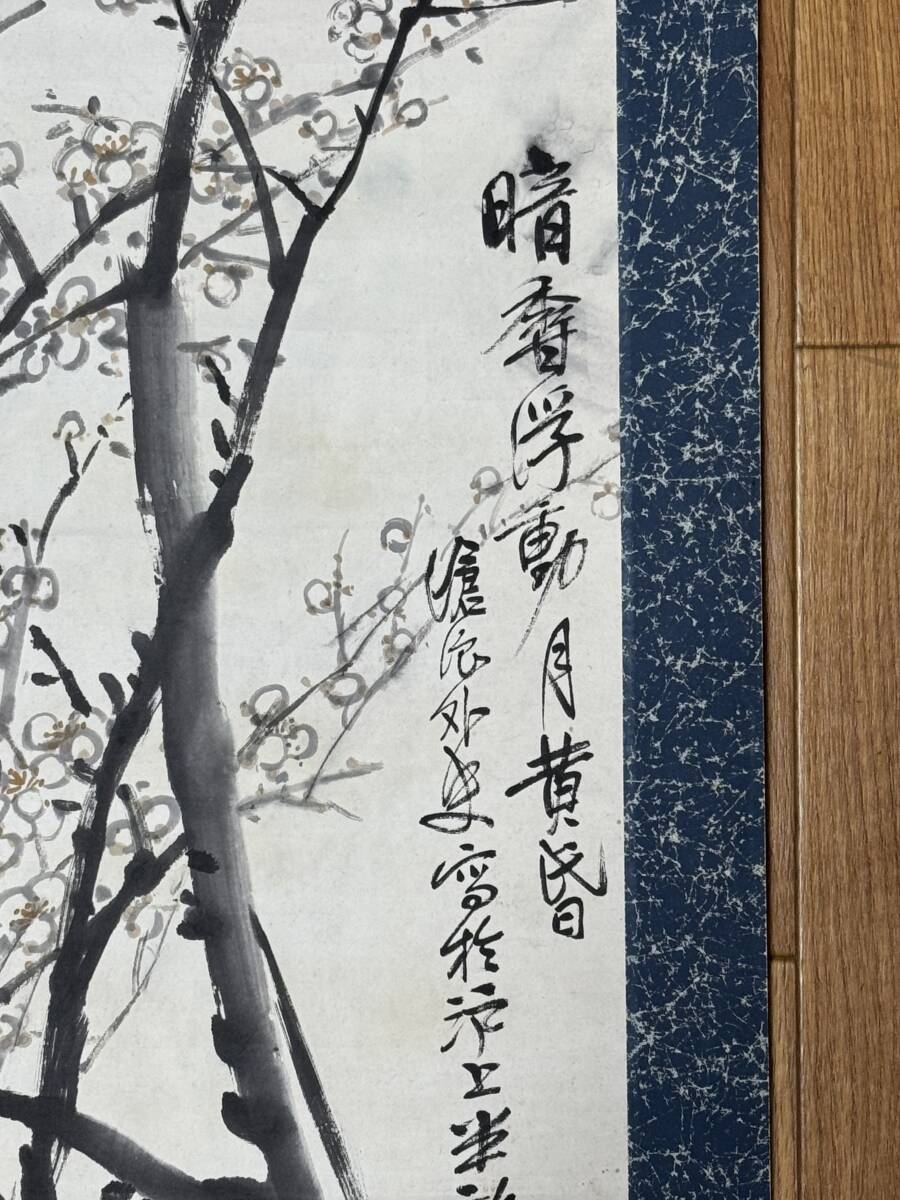 暗香浮動月黄昏
滄沱外史寫於滬上半